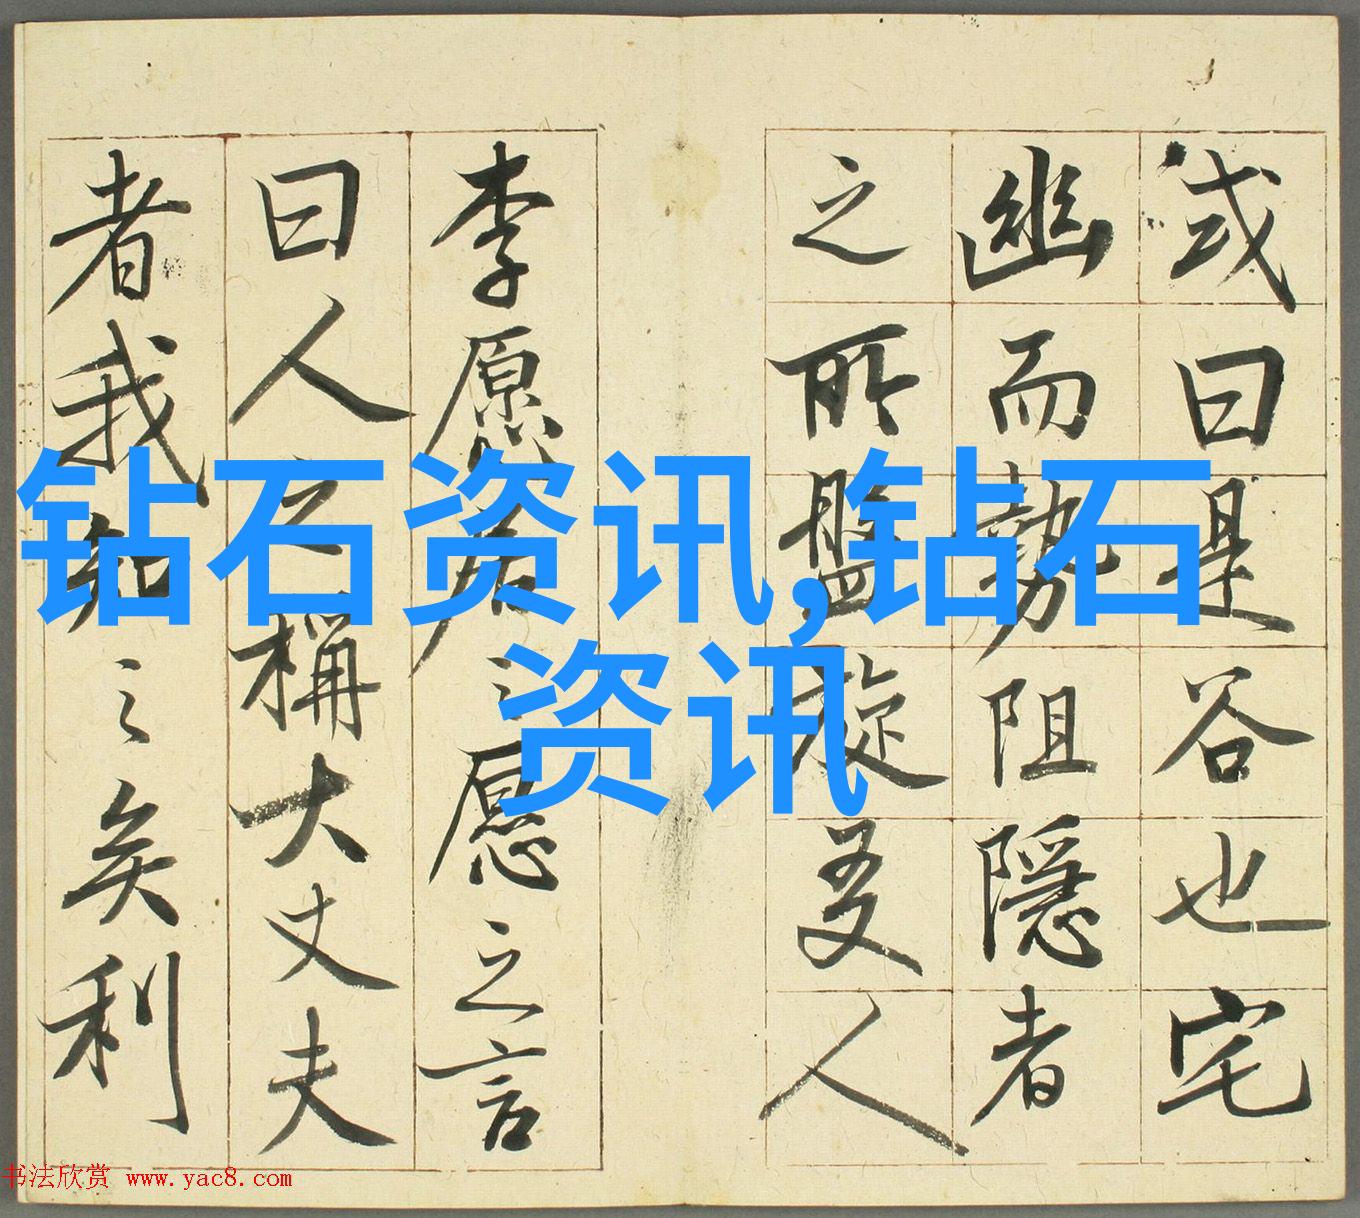 或曰是谷也宅
幽而勢阻隱者
之所盤旋友人
李愿居之愿之言
曰人之稱大丈夫
者我知之矣利
钻石资讯,钻石
资讯
书法欣赏 www.yac8.com